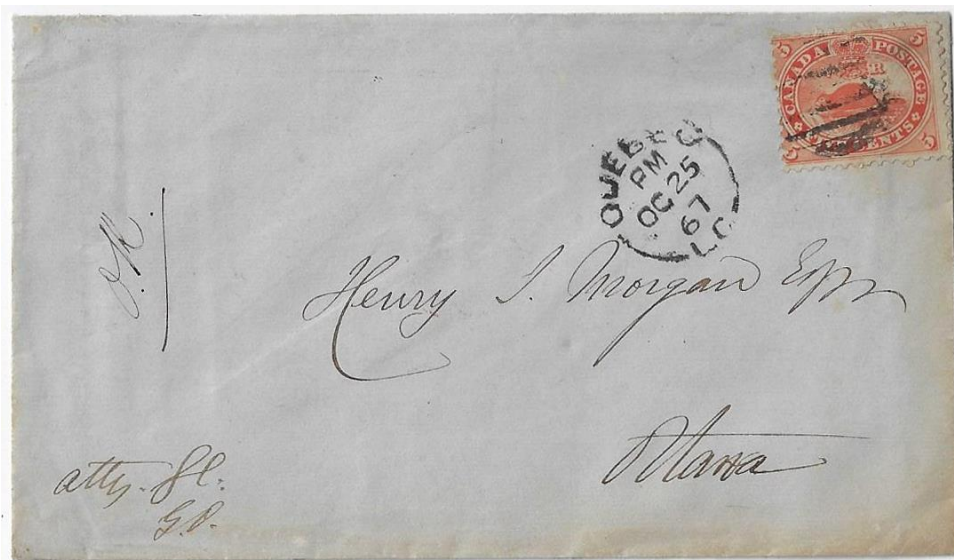 5 CANADA POSTAGE 5
5 CENTS 5
QUEBEC
PM
OC 25
67
L.C
O.K.
Henry J. Morgan Esqr
Ottawa
atty. Gl.